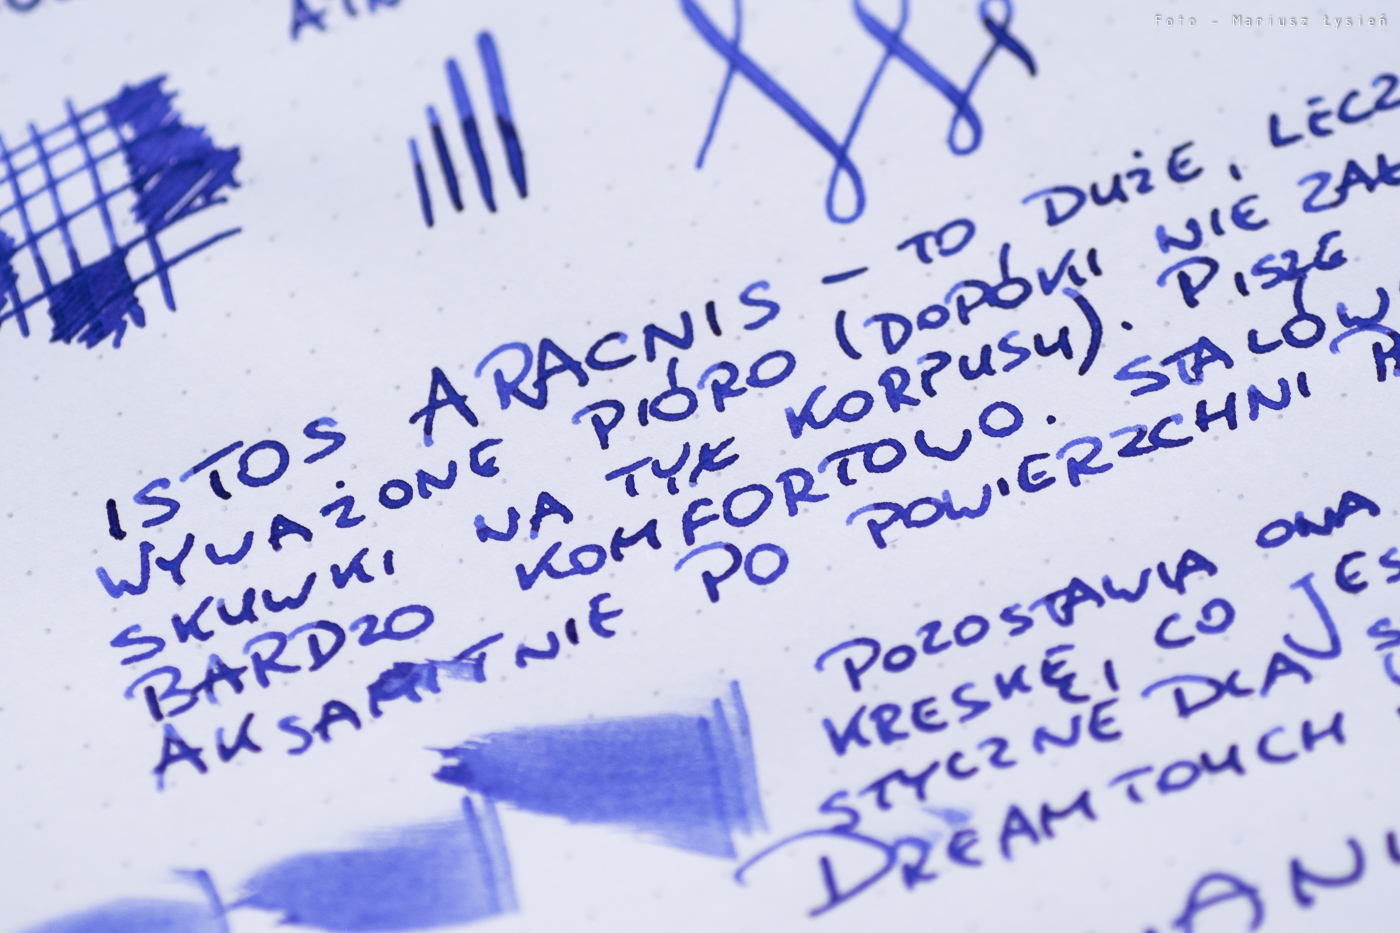 Foto - Mariusz Łysień
ISTOS ARACNIS – TO DUŻE, LECZ
WYWAŻONE PIÓRO (DOPÓKI NIE
SKUWKI NA TYŁ KORPUSU). PISZE
BARDZO KOMFORTOWO.
AKSAMITNIE PO POWIERZCHNI
POZOSTAWIA ONA
KRESKĘ, CO
STYCZNE DLA
DREAMTOUCH